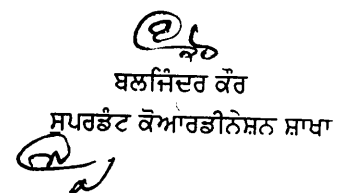 ਬਲਜਿੰਦਰ ਕੌਰ
ਸੁਪਰਡੰਟ ਕੋਆਰਡੀਨੇਸ਼ਨ ਸ਼ਾਖਾ